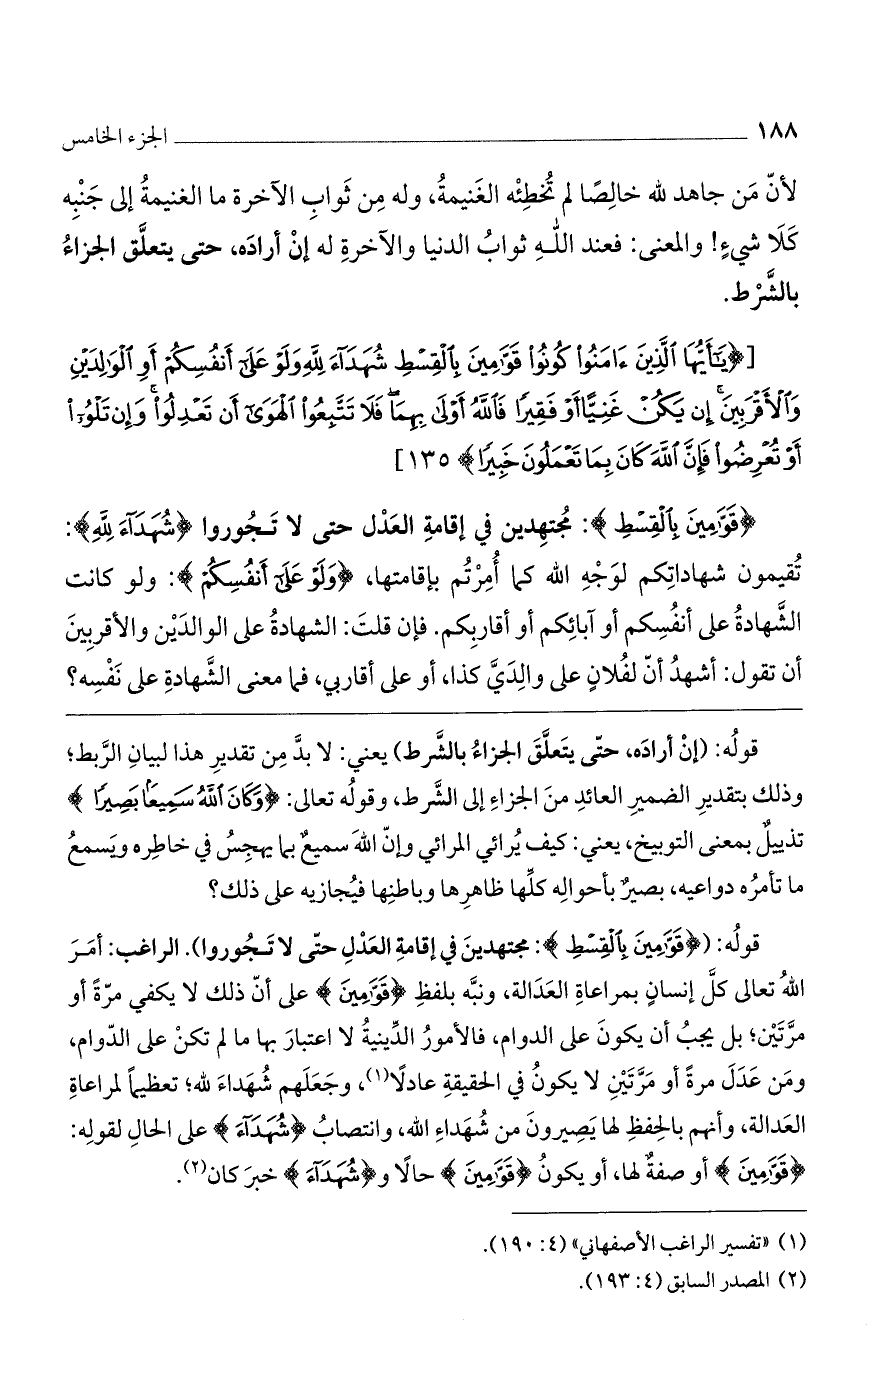 ١٨٨ الجزء الخامس
لأنّ مَن جاهد لله خالِصًا لم تُخطِئْه الغَنيمةُ، وله مِن ثَوابِ الآخرة ما الغنيمةُ إلى جَنْبِه
كَلَا شيءٍ! والمعنى: فعند اللهِ ثوابُ الدنيا والآخرةِ له إنْ أرادَه، حتى يتعلَّق الجزاءُ
بالشَّرْط.
[﴿يَٰٓأَيُّهَا ٱلَّذِينَ ءَامَنُوا۟ كُونُوا۟ قَوَّٰمِينَ بِٱلْقِسْطِ شُهَدَآءَ لِلَّهِ وَلَوْ عَلَىٰٓ أَنفُسِكُمْ أَوِ ٱلْوَٰلِدَيْنِ
وَٱلْأَقْرَبِينَ ۚ إِن يَكُنْ غَنِيًّا أَوْ فَقِيرًا فَٱللَّهُ أَوْلَىٰ بِهِمَا ۖ فَلَا تَتَّبِعُوا۟ ٱلْهَوَىٰٓ أَن تَعْدِلُوا۟ ۚ وَإِن تَلْوُۥٓا۟
أَوْ تُعْرِضُوا۟ فَإِنَّ ٱللَّهَ كَانَ بِمَا تَعْمَلُونَ خَبِيرًا﴾ ١٣٥]
﴿قَوَّٰمِينَ بِٱلْقِسْطِ﴾: مُجتهِدين في إقامةِ العَدْل حتى لا تَجُوروا ﴿شُهَدَآءَ لِلَّهِ﴾:
تُقيمون شهاداتِكم لوَجْهِ الله كما أُمِرْتُم بإقامتها، ﴿وَلَوْ عَلَىٰٓ أَنفُسِكُمْ﴾: ولو كانت
الشَّهادةُ على أنفُسِكم أو آبائِكم أو أقاربِكم. فإن قلتَ: الشهادةُ على الوالدَيْن والأقربِينَ
أن تقول: أشهدُ أنّ لفُلانٍ على والِدَيَّ كذا، أو على أقاربي، فما معنى الشَّهادةِ على نَفْسِه؟
قولُه: (إنْ أرادَه، حتّى يتَعلَّقَ الجزاءُ بالشَّرط) يعني: لا بدَّ مِن تقديرِ هذا لبيانِ الرَّبط؛
وذلك بتقديرِ الضميرِ العائدِ منَ الجزاءِ إلى الشَّرط، وقولُه تعالى: ﴿وَكَانَ ٱللَّهُ سَمِيعًۢا بَصِيرًا﴾
تذييلٌ بمعنى التوبيخ، يعني: كيف يُرائي المرائي وإنّ اللهَ سميعٌ بما يهجِسُ في خاطِره ويَسمعُ
ما تأمرُه دواعيه، بصيرٌ بأحوالِه كلِّها ظاهرِها وباطنِها فيُجازيه على ذلك؟
قولُه: (﴿قَوَّٰمِينَ بِٱلْقِسْطِ﴾: مجتهدينَ في إقامةِ العَدْلِ حتّى لا تَجُوروا). الراغب: أمَرَ
اللهُ تعالى كلَّ إنسانٍ بمراعاةِ العَدَالة، ونبَّه بلفظِ ﴿قَوَّٰمِينَ﴾ على أنّ ذلك لا يكفي مرّةً أو
مرَّتَيْن؛ بل يجبُ أن يكونَ على الدوام، فالأمورُ الدِّينيةُ لا اعتبارَ بها ما لم تكنْ على الدّوام،
ومَن عَدَلَ مرةً أو مَرَّتَيْنِ لا يكونُ في الحقيقةِ عادلًا(١)، وجَعَلَهم شُهَداءَ لله؛ تعظيماً لمراعاةِ
العَدالة، وأنهم بالحِفظِ لها يَصِيرونَ من شُهَداءِ الله، وانتصابُ ﴿شُهَدَآءَ﴾ على الحالِ لقولِه:
﴿قَوَّٰمِينَ﴾ أو صفةٌ لها، أو يكونُ ﴿قَوَّٰمِينَ﴾ حالًا و﴿شُهَدَآءَ﴾ خبرَ كان(٢).
(١) «تفسير الراغب الأصفهاني» (٤: ١٩٠).
(٢) المصدر السابق (٤: ١٩٣).